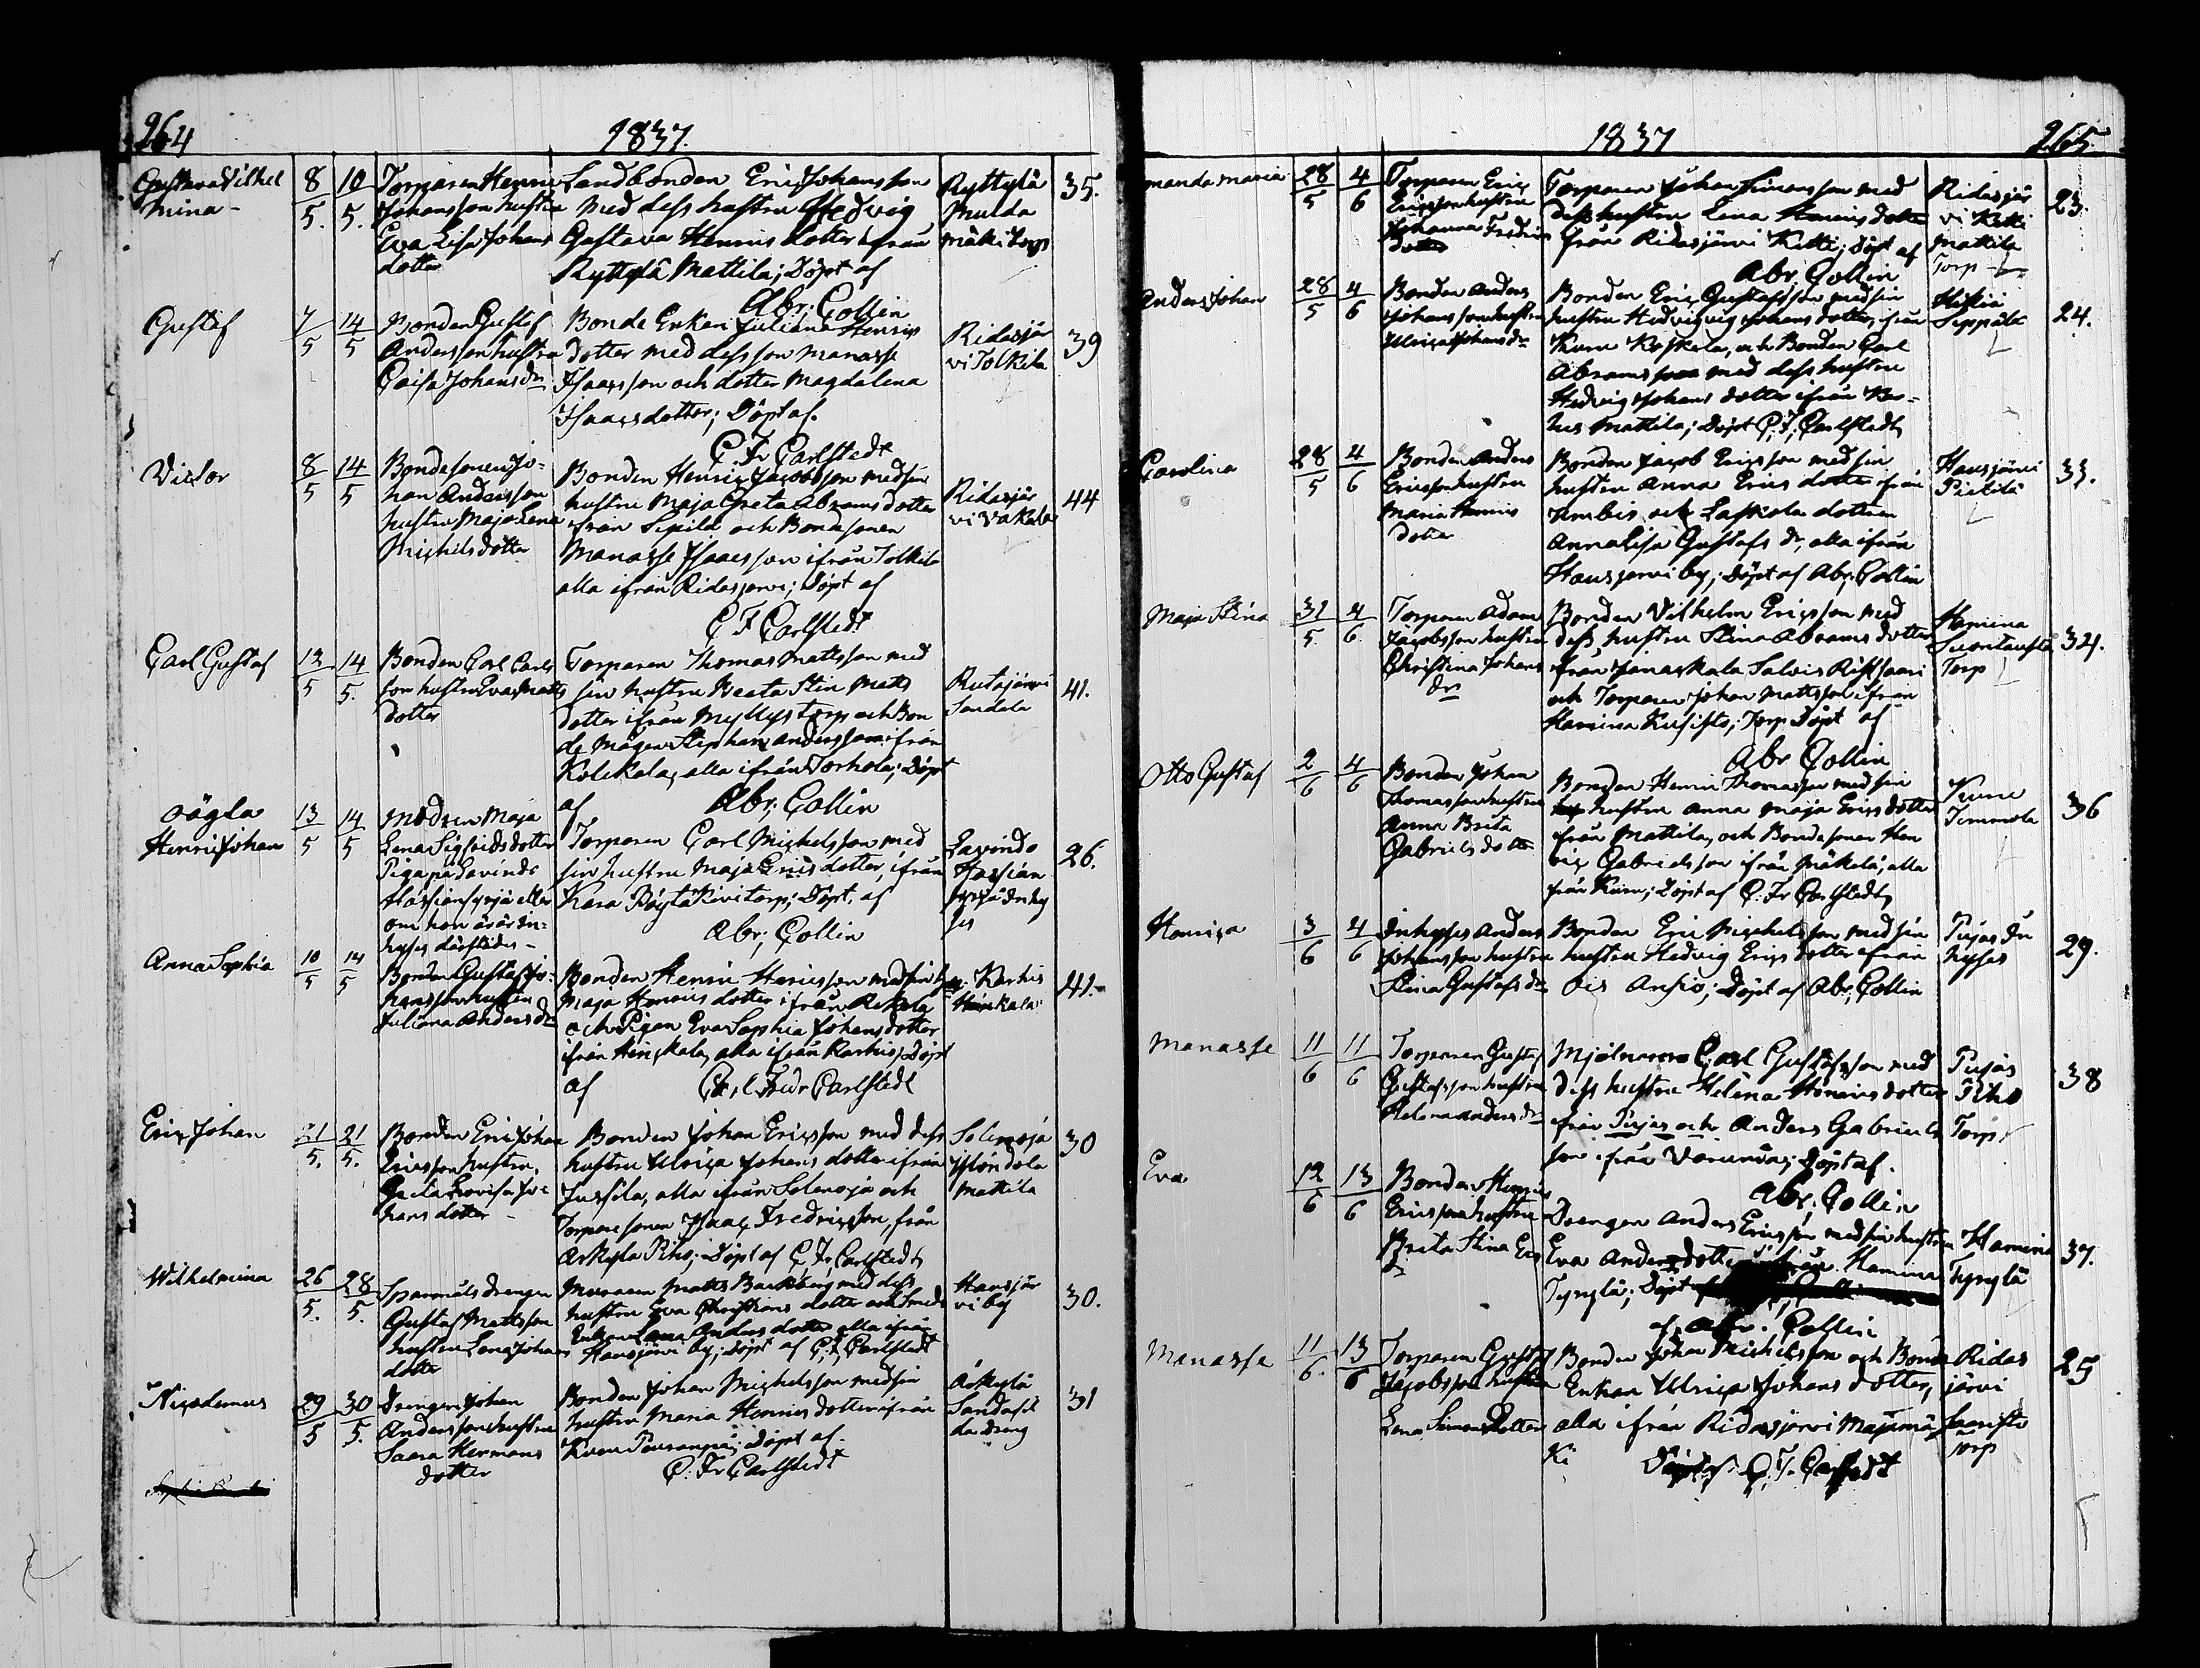 264
1837.
Gustava Vilhel
mina -
8/5. 10/5.
Torparen Henric
Johansson hustru
Eva Lisa Johans
dotter
Landbonden Eric Johansson
med dess hustru Hedvig
Gustava Henrics dotter ifrån
Ryttylä Mattila; Döpt af
Abr: Collin
Ryttylä
Mulda
mäki torp
35.
Gustaf
7/5 14/5
Bonden Gustaf
Andersson hustru
Caisa Johans dr
Bonde Enkan Juliana Henrics
dotter med dess son Manasse
Isaacsson och dotter Magdalena
Isaacsdotter; Döpt af.
C. Fr Carlstedt
Ridasjär
vi Tolkila
39
Victor
8/5 14/5
Bondesonen Jo-
han Andersson
hustru Maja Lena
Michels dotter
Bonden Henric Jacobsson med sin
hustru Maja Greta Abrams dotter
ifrån Sipilä och Bondsonen
Manasse Isaacsson ifrån Tolkila
alla ifrån Ridasjervi; Döpt af
C F Carlstedt
Ridasjär
vi Vakala
44
Carl Gustaf
12/5 14/5.
Bonden Carl Carls
son hustru Eva Matts
dotter
Torparen Thomas Mattsson med
sin hustru Beata Stin Matts
dotter ifrån Myllys torp och Bon
de Mågen Stephan Andersson ifrån
Kolekala, alla ifrån Torhola; Döpt
af Abr; Collin
Rutajärvi
Sondala
41.
oägta
Henric Johan
13/5 14/5
Modren Maja
Lena Sigfrids dotter
Piga på Lavinds
om hon är är in-
hyses därstädes -
Torparen Carl Michelsson med
sin hustru Maja Erics dotter, ifrån
Kara torp; Döpt, af
Abr; Collin
Lavindo
Hassian
26.
Anna Sophia
10/5 14/5
Bonden Gustaf Jo-
hansson hustru
Juliana Anders dr
Bonden Henric Henricsson med sin
Maja Henrics dotter ifrån
och Pigan Eva Sophia Johansdotter
ifrån alla ifrån Karhis; Döpt
af Carl Fredr Carlstedt
Karhis
41.
Eric Johan
21/5. 21/5.
Bonden Eric Johan
Ericsson hustru,
Greta Lovisa Jo-
hans dotter -
Bonden Johan Ericsson med dess
hustru Ulrica Johans dotter ifrån
Jussila, alla ifrån Selenoja och
Torparesonen Isaac Fredricsson, från
Arkyla Piho; Döpt af C. Fr. Carlstedt
Selenoja
Mattila
30
Wilhelmina
26/5. 28/5.
Spannmåls drengen
Gustaf Mattsson
hustru Lena Johans
dotter
Muraren Matts med dess
hustru Eva Christians dotter och Smeds
Enkan Lena Anders dotter alla ifrån
Hausjärvi by; Döpt af C; F; Carlstedt
Hausjär
vi by
30.
Nicodemus
29/5 30/5.
Drengen Johan
Andersson hustru
Saara Hermans
dotter
Bonden Johan Michelsson med sin
hustru Maria Henrics dotter ifrån
Kuru Döpt af.
C: Fr Carlstedt
31
1837
265.
manda Maria
28/5 4/6
Torparen Eric
Ericsson hustru
Johanna Fredrics
dotter
Torparen Johan Simonsson med
dess hustru Lena Henrics dotter
ifrån Ridasjärvi Kitti; Döpt af
Abr, Collin
Ridasjär
vi Kitti
Mattila
Torp
23.
Anders Johan
28/5 4/6
Bonden Anders
Johansson hustru
Ulrica Johans dr
Bonden Eric Gustafsson med sin
hustru Hedvig Johans dotter, från
Kuru Koskela, och Bonden Carl
Abramsson med dess hustru
Hedvig Johans dotter ifrån Kar-
his Mattila; Döpt C, F, Carlstedt
Hikiä
Seppälä
24.
Carolina
28/5 4/6
Bonden Anders
Ericsson hustru
Maria Henrics
dotter
Bonden Jacob Ericsson med sin
hustru Anna Erics dotter från
och Laskola dottren
Anna Lisa Gustafs dr, alla ifrån
Hausjervi by; Döpt af Abr; Collin
Hausjärvi
Pietilä
33.
Maja Stina
31/5. 4/6.
Torparen Adam
Jacobsson hustru
Christina Johans
dr
Bonden Vilhelm Ericsson med
dess hustru Stina Abrams dotter
ifrån Janakkala Salois
och Torparen Johan Mattsson ifrån
Hamina Torp Döpt af
Abr Collin
Hamina
Torp
34.
Otto Gustaf
2/6 4/6
Bonden Johan
Thomasson hustru
Anna Brita
Gabriels dotter
Bonden Henric Thomasson med sin
hustru Anna Maja Erics dotter
från Mattila, och Bondesonen Hen
ric Gabrielsson ifrån Mäkelä; alla
från Kuru; Döpt af C. Fr Carlstedt
Kuru
Timmola
36
Henrica
3/6 4/6
Inhyses Anders
Johansson hustru
Stina Gustafs dr
Bonden Eric Michelsson med sin
hustru Hedvig Erics dotter ifrån
Ois Ansio; Döpt af Abr, Collin
Pujas In
hyses
29.
Manasse
11/6 11/6
Torparen Gustaf
Gustafsson hustru
Helena Anders dr
Mjölnaren Carl Gustafsson med
dess hustru Helena Henrics dotter
ifrån Pujas och Anders Gabriels
son ifrån Döpt af.
Abr. Collin
Pujas
Piho
Torp
38
Eva
12/6 13/6
Bonden Henric
Ericsson hustru
Brita Stina Erics
dr
Drengen Anders Ericsson med sin hustru
Eva Anders dotter ifrån Hamina
Tynylä; Döpt
af, Abr. Collin
Hamina
Tynylä
37.
Manasse
11/6. 13/6
Torparen Gustaf
Jacobsson hustru
Lena Simons dotter
Bonden Johan Michelsson och Bonde
Enkan Ulrica Johans dotter,
alla ifrån Ridasjervi Majamä
ki Döpt af. C. F. Carlstedt
Ridas
järvi
Saaristo
Torp
25